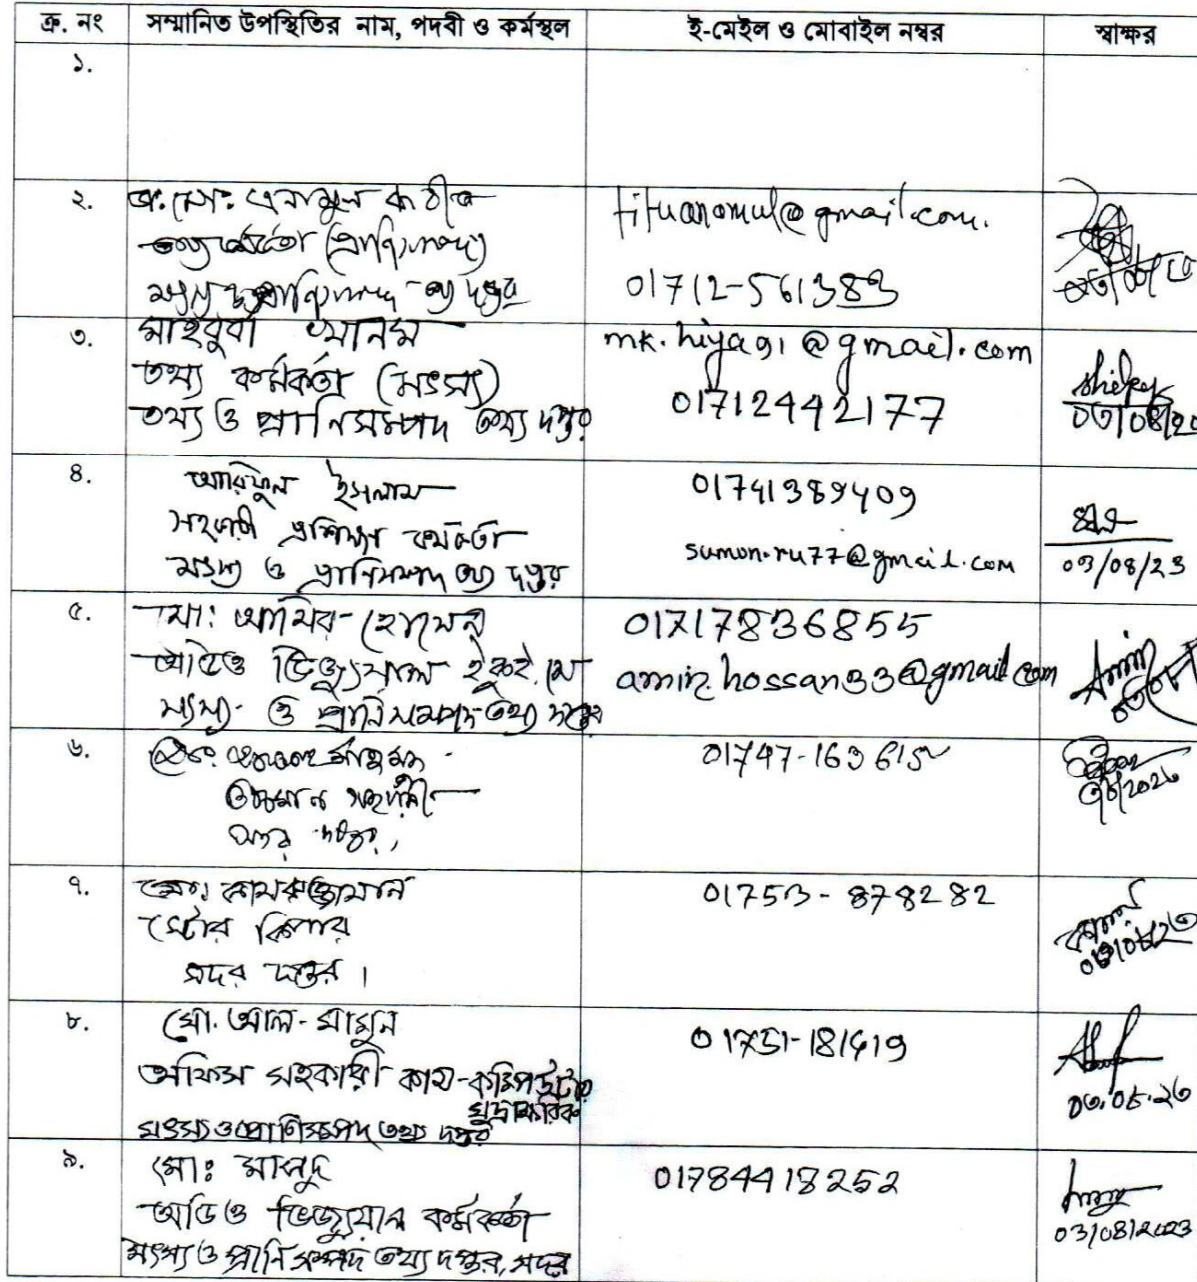 ক্র. নং সম্মানিত উপস্থিতির নাম, পদবী ও কর্মস্থল ই-মেইল ও মোবাইল নম্বর স্বাক্ষর
১.
২. ড. মো: এনামুল কবীর
তথ্য কর্মকর্তা (প্রাণিসম্পদ)
মৎস্য ও প্রাণিসম্পদ তথ্য দপ্তর
tituanomul@gmail.com.
01712-561383
৩. মাহবুবা খানম
তথ্য কর্মকর্তা (মৎস্য)
তথ্য ও প্রাণিসম্পদ তথ্য দপ্তর
mk.hiya91@gmail.com
01712442177
৪. আরিফুল ইসলাম
সহকারী প্রশিক্ষণ কর্মকর্তা
মৎস্য ও প্রাণিসম্পদ তথ্য দপ্তর
01741389409
sumon.ru77@gmail.com
03/08/23
৫. মো: আমির হোসেন
অডিও ভিজ্যুয়াল
মৎস্য ও প্রাণিসম্পদ তথ্য দপ্তর
01717836855
amir.hossan33@gmail.com
৬.
সদর দপ্তর,
01747-163615
৭. মোঃ কামরুজ্জামান
স্টোর কিপার
সদর দপ্তর।
01753-878282
৮. মো. আল-মামুন
অফিস সহকারী কাম-কম্পিউটার
মুদ্রাক্ষরিক
মৎস্য ও প্রাণিসম্পদ তথ্য দপ্তর
01751-181419
০৩.০৮.২৩
৯. মো: মাসুদ
অডিও ভিজ্যুয়াল কর্মকর্তা
মৎস্য ও প্রাণি সম্পদ তথ্য দপ্তর, সদর
01784418252
03/08/2023